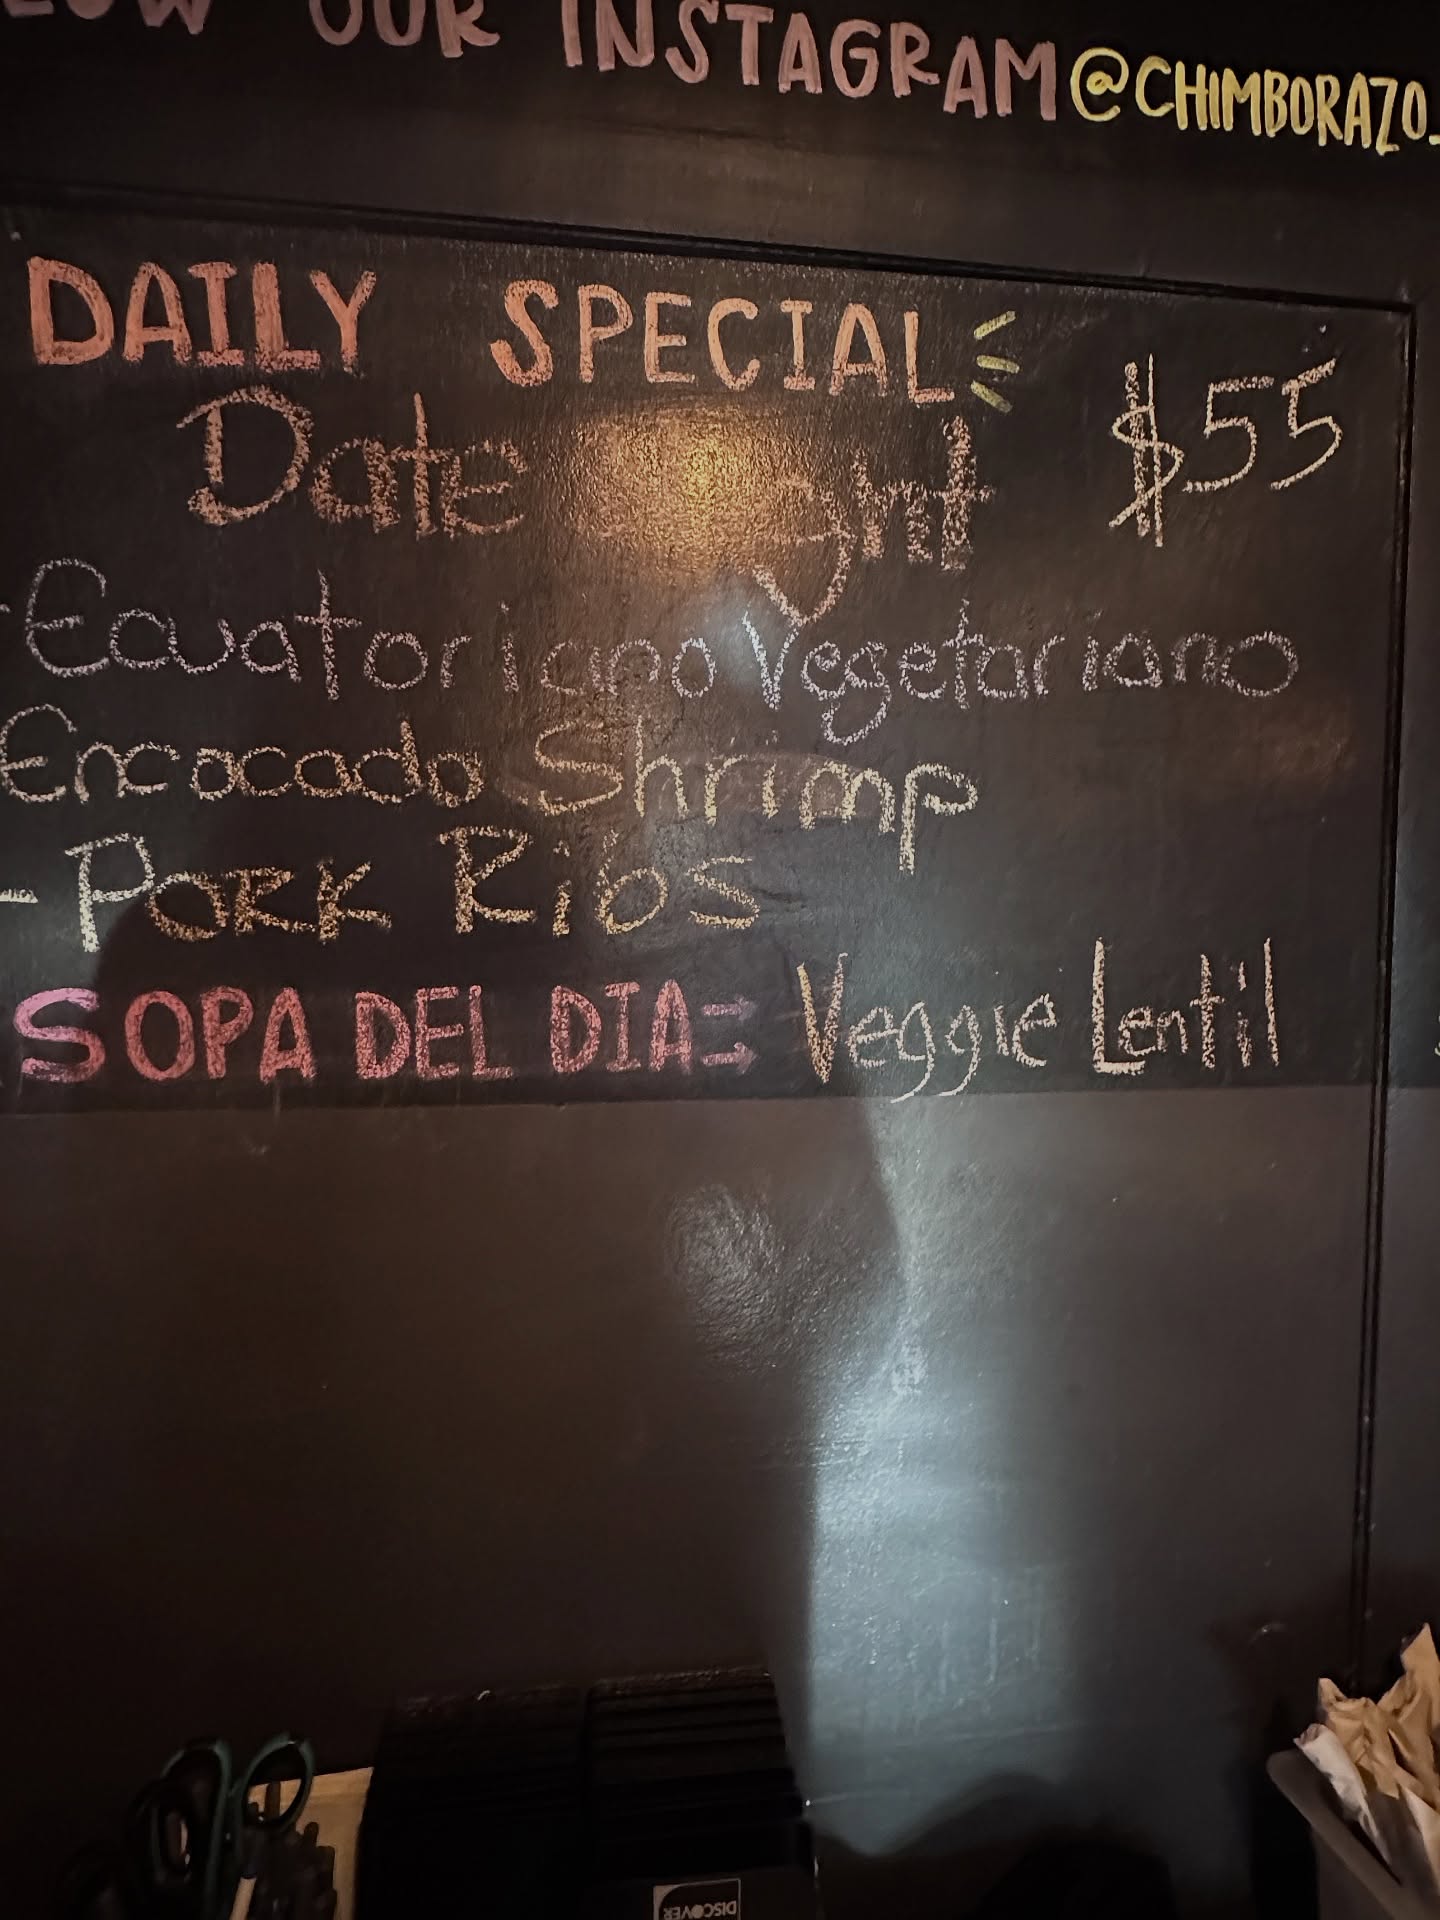 OUR INSTAGRAM @CHIMBORAZO_
DAILY SPECIAL
Date Night $55
Ecuatoriano Vegetariano
Encocado Shrimp
- Pork Ribs
SOPA DEL DIA: Veggie Lentil
DISCOVER